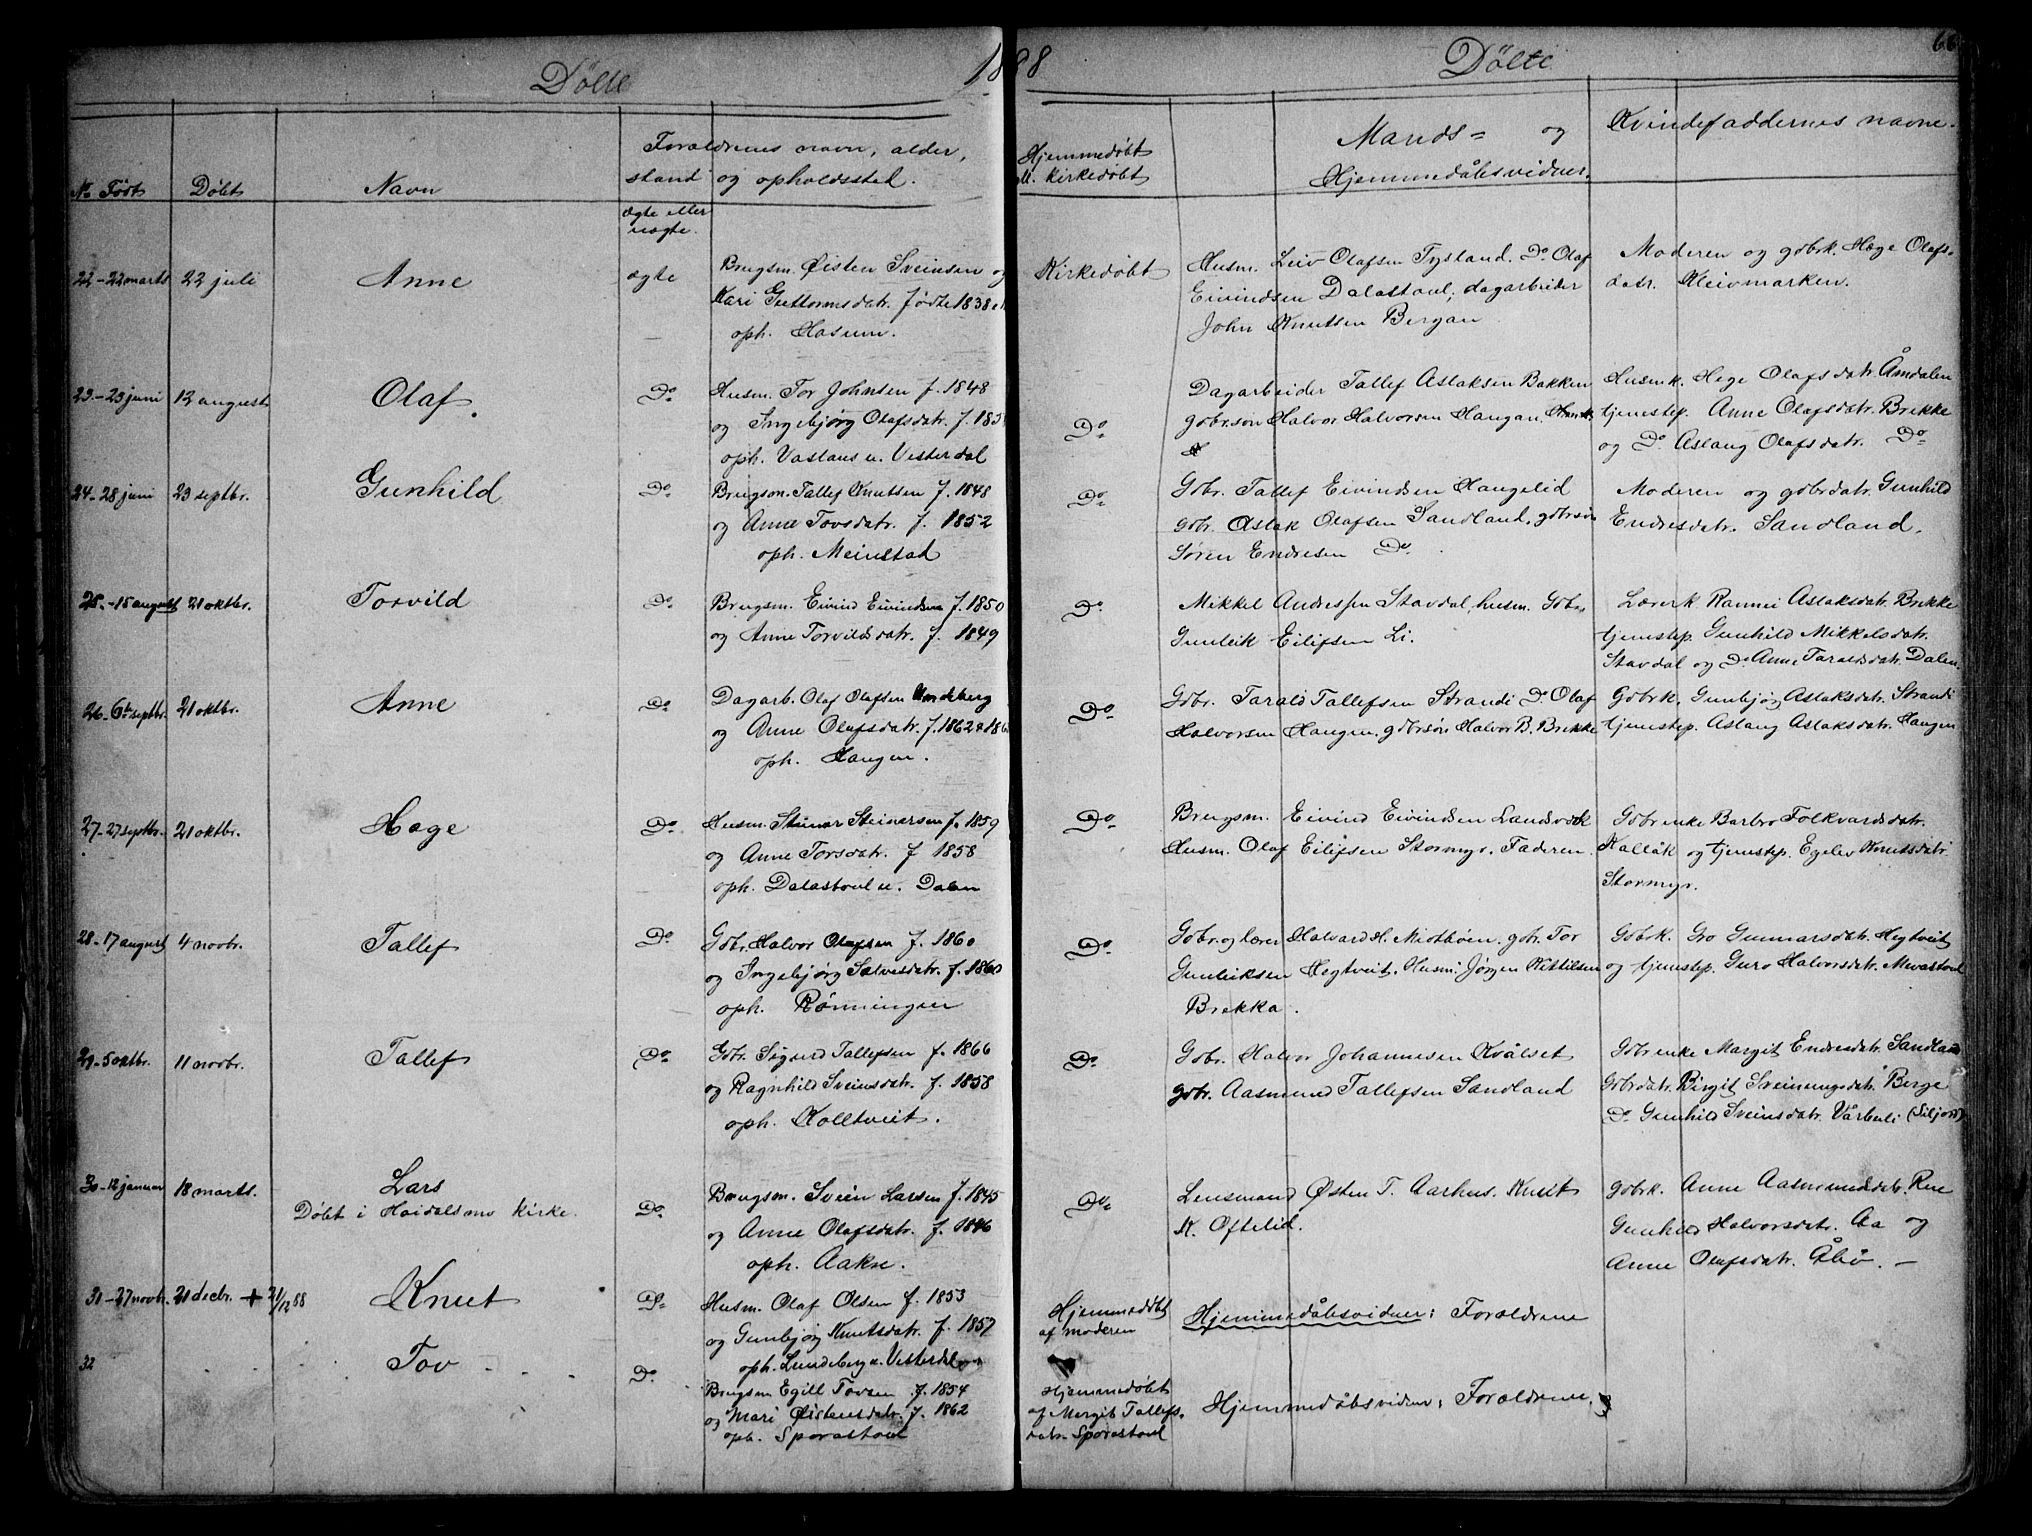 1888
66
Døbte
Døbte
No Født
Døbt
Navn
Forældrenes navn, alder,
stand og opholdssted.
ægte eller
uægte.
Hjemmedøbt
el. kirkedøbt
Mands= og Kvindefaddernes navne.
Hjemmedåbsvidner.
22-22 marts 22 juli Anne ægte Brugsm. Øisten Sveinsen og
Kari Guttormsdatr. fødte 1838
oph. Hosum.
Kirkedøbt
Husm. Leiv Olafsen Tystand. Do Olaf
Eivindsen Dalastoul; dagarbeider
John Knutsen Bergan
Moderen og gdbrk. Hæge Olafs-
datr. Kleivmarken.
23-23 juni 12 august Olaf. Do Husm. Tor Johnsen f. 1848
og Ingebjørg Olafsdatr. f. 185
oph. Vastaus u. Vesterdal
Do
Dagarbeider Tallef Aslaksen Bakken
gdbr.søn Halvor Halvorsen Haugan.
Husmk. Hege Olafsdatr. Åmdalen
tjenestep. Anne Olafsdatr. Brekke
og Do Aslaug Olafsdatr. Do
24-28 juni 23 septbr. Gunhild Do Brugsm. Tallef Knutsen f. 1848
og Anne Tovsdatr. f. 1852
oph. Meinstad
Do
Gdbr. Tallef Eivindsen Haugelid
gdbr. Aslak Olafsen Sandland, gdbrsøn
Søren Endresen Do
Moderen og gdbrdatr. Gunhild
Endresdatr. Sandland.
25-15 august 21 oktbr. Torvild Do Brugsm. Eivind Eivindsen f. 1850
og Anne Torvildsdatr. f. 1849
Do
Mikkel Andresen Stavdal, husm. Gdbr.
Gunleik Eilifsen Li.
Lærerk Rannei Aslaksdatr. Brekke
tjenestep. Gunhild Mikkelsdatr.
Stavdal og Do Anne Taraldsdatr. Dalen.
26-6te septbr. 21 oktbr. Anne Do Dagarb. Olaf Olafsen Lundeberg
og Anne Olafsdatr. f. 1862 & 186
oph. Haugen.
Do
Gdbr. Tarald Tallefsen Strandi Do Olaf
Halvorsen Haugen, gdbrsøn Halvor B. Brekke
Gdbrk. Gunbjøg Aslaksdatr. Strandi
tjenestep. Aslaug Aslaksdatr. Haugen
27-27 septbr. 21 oktbr. Hæge Do Husm. Steinar Steinarsen f. 1859
og Anne Torsdatr. f 1858
oph. Dalastoul u. Dalen
Do
Brugsm. Eivind Eivindsen Landsverk
Husm. Olaf Eilifsen Stormyr. Faderen.
Gdbrenke Barbro Folkvardsdatr.
Kallåk og tjenestep. Egelev Knutsdatr.
Stormyr.
28-17 august 4 novbr. Tallef Do Gdbr. Halvor Olafsen f. 1860
og Ingebjørg Salvesdatr. f. 1860
oph. Rønningen
Do
Gdbr. og lærer Halvard H. Midtbøen. gdbr. Tor
Gunleiksen Hegtveit. Husm. Jørgen Kittilsen
Brekka.
Gdbrk. Gro Gunnarsdatr. Hegtveit
og tjenestep. Guro Halvorsdatr. Mvastoul
29-5 oktbr. 11 novbr. Tallef Do Gdbr. Sigurd Tallefsen f. 1866
og Ragnhild Sveinsdatr. f. 1858
oph. Kolltveit.
Do
Gdbr. Halvor Johannesen Kvålset
gdbr. Aasmund Tallefsen Sandland
Gdbrenke Margit Endresdatr. Sandland
Gdbrdatr. Birgit Sveinungsdatr. Berge
Do Gunhild Sveinsdatr. Vårbuli (Siljord)
30-12 januar 18 marts. Lars
Døbt i Høidalsmo kirke. Do Brugsm. Svein Larsen f. 1845
og Anne Olafsdatr. f. 1846
oph. Aakre.
Do
Lensmand Østen T. Aarhus. Knut
K. Oftelid.
gdbrk. Anne Aasmundsdatr. Rue
Gunhild Halvorsdatr. Aa og
Anne Olafsdatr. Åbø. -
31-27 novbr. 21 decbr. + 21/12 88 Knut Do Husm. Olaf Olsen f. 1853
og Gunbjøg Knutsdatr. f. 1857
oph. Lundeberg u. Vesterdal
Hjemmedøbt
af moderen
Hjemmedåbsvidner: Forældrene
32 Tov Do Brugsm Egill Tovsen f. 1854
og Mari Østensdatr. f. 1862
oph. Sporastoul
Hjemmedøbt
af Mergit Tallefs-
datr. Sporastoul
Hjemmedåbsvidner: Forældrene.